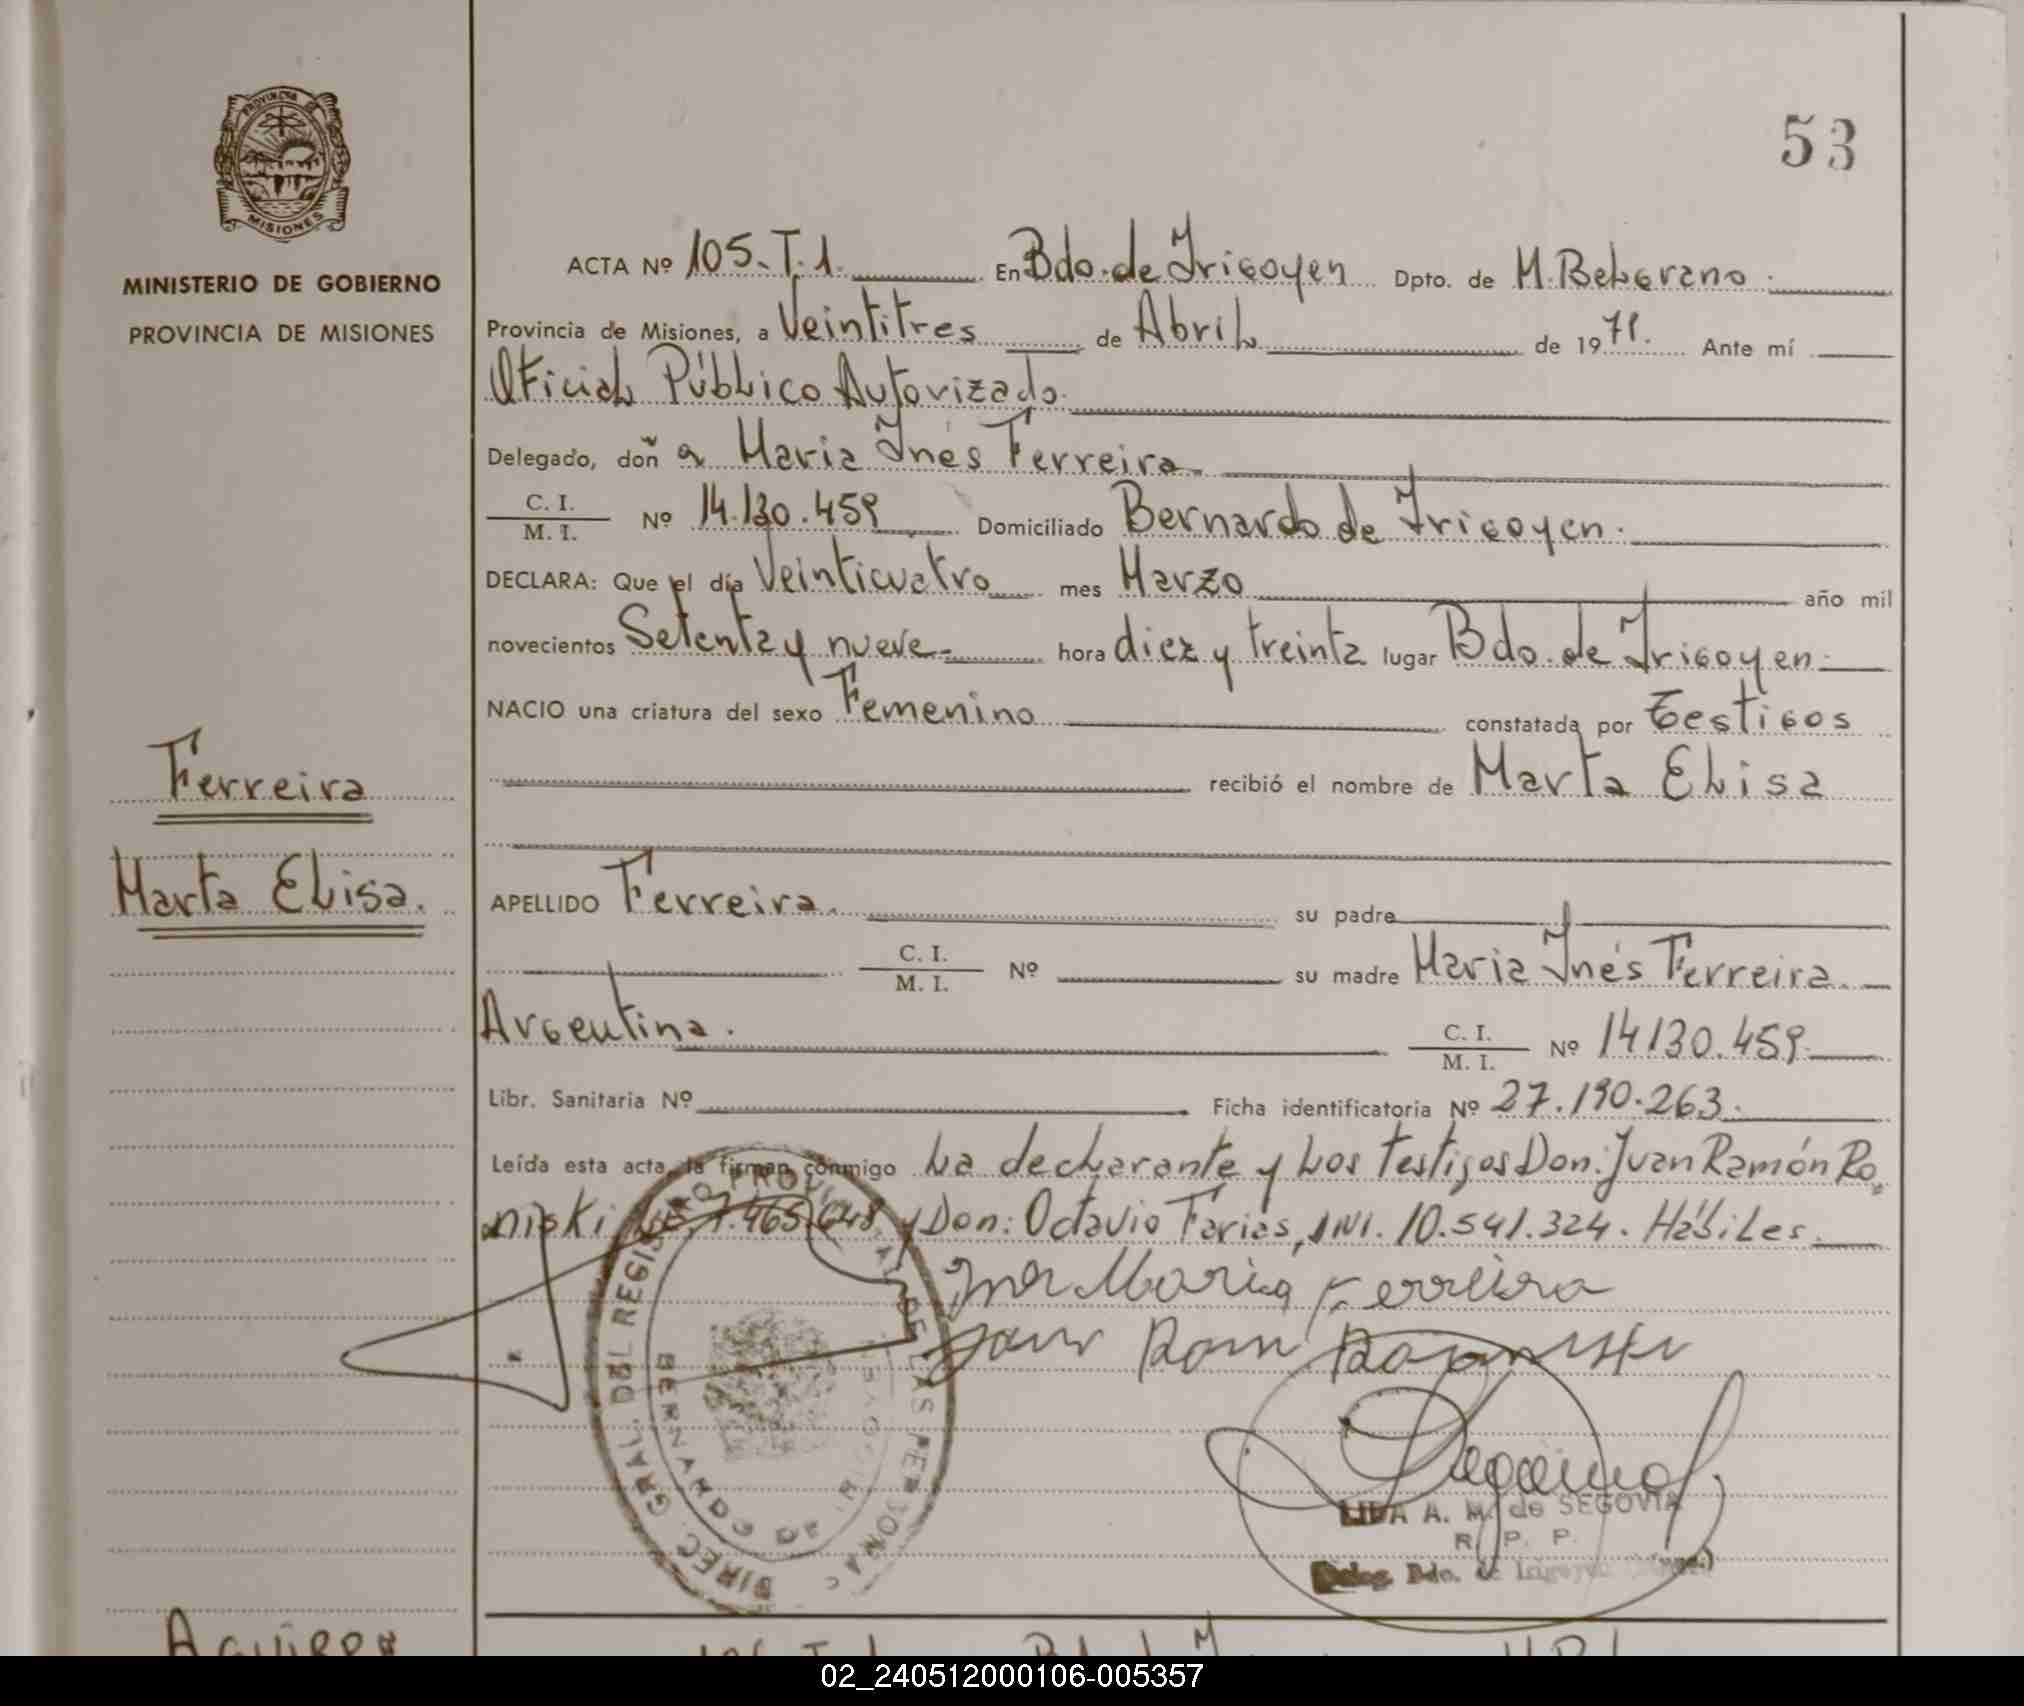 53
PROVINCIA DE
MISIONES
MINISTERIO DE GOBIERNO
PROVINCIA DE MISIONES
ACTA Nº 105-T.1. En Bdo. de Irigoyen Dpto. de M. Belgrano
Provincia de Misiones, a Veintitres de Abril de 1971. Ante mí
Oficial Público Autorizado.
Delegado, doñ a Maria Inés Ferreira
C. I. / M. I. Nº 14.130.459 Domiciliado Bernardo de Irigoyen.
DECLARA: Que el día Veinticuatro mes Marzo año mil
novecientos Setenta y nueve hora diez y treinta lugar Bdo. de Irigoyen
NACIO una criatura del sexo Femenino constatada por Testigos
recibió el nombre de Marta Elisa
Ferreira
Marta Elisa.
APELLIDO Ferreira. su padre
C. I. / M. I. Nº su madre Maria Inés Ferreira.
Argentina. C. I. / M. I. Nº 14130.459
Libr. Sanitaria Nº Ficha identificatoria Nº 27.190.263.
Leída esta acta, la firman conmigo La declarante y Los Testigos Don: Juan Ramón Ro
niski 7.465.648 y Don: Octavio Farias, M.I. 10.541.324. Hábiles.
Maria Ferreira
DIREC. GRAL. DEL REGISTRO PROVINCIAL DE LAS PERSONAS
BERNARDO DE
LIDA A. M. de SEGOVIA
R. P. P.
Deleg. Bdo. de Irigoyen
Aguirre
02_240512000106-005357